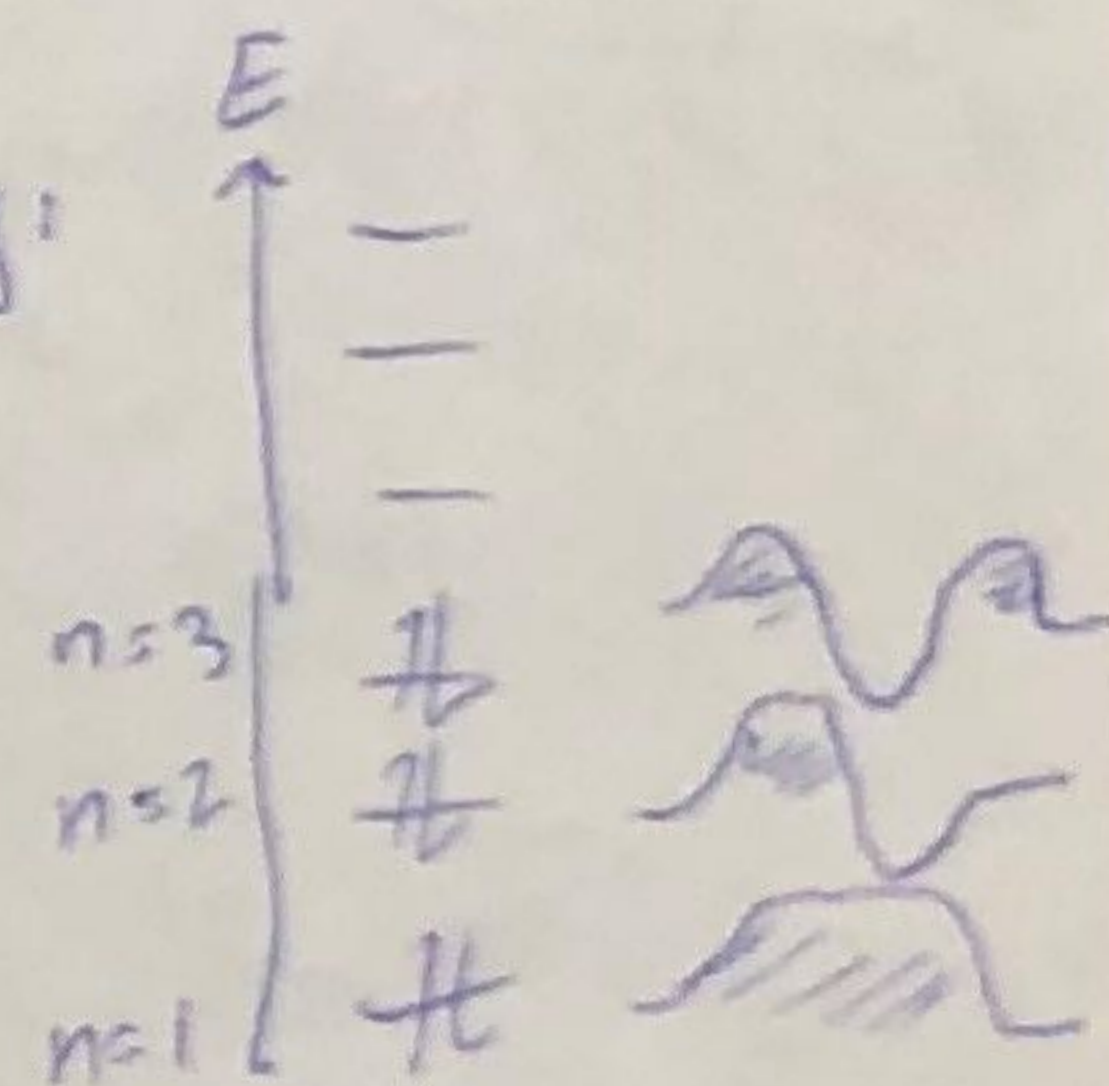 E
n=3
n=2
n=1